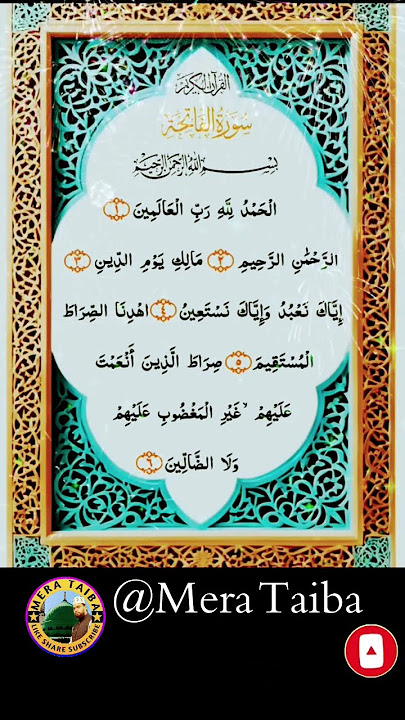 القرآن الكريم
سورة الفاتحة
بسم الله الرحمن الرحيم
الْحَمْدُ لِلَّهِ رَبِّ الْعَالَمِينَ ١
الرَّحْمَٰنِ الرَّحِيمِ ٢ مَالِكِ يَوْمِ الدِّينِ ٣
إِيَّاكَ نَعْبُدُ وَإِيَّاكَ نَسْتَعِينُ ٤ اهْدِنَا الصِّرَاطَ
الْمُسْتَقِيمَ ٥ صِرَاطَ الَّذِينَ أَنْعَمْتَ
عَلَيْهِمْ غَيْرِ الْمَغْضُوبِ عَلَيْهِمْ
وَلَا الضَّالِّينَ ٦
@Mera Taiba
MERA TAIBA
LIKE SHARE SUBSCRIBE